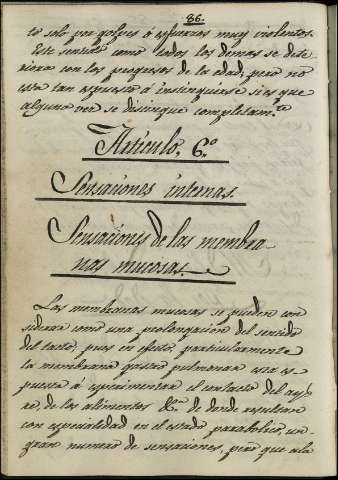 86.
to solo por golpes o esfuerzos muy violentos.
Este sentido como todos los demas se dete-
riora con los progresos de la edad, pero no
esta tan espuesto á instinguirse si es que
alguna vez se distingue completam.te
Articulo. 6.o
Sensaciones internas.
Sensaciones de las membra-
nas mucosas.
Las membranas mucosas se pueden con
siderar como una prolongacion del sentido
del tacto, pues en efecto, particularmente
la membrana gastro pulmonar esta es
puesta á esperimentar el contacto del ay-
re, de los alimentos &.a de donde resultan
con especialidad en el estado patabolico, un
gran numero de sensaciones, pero que a la